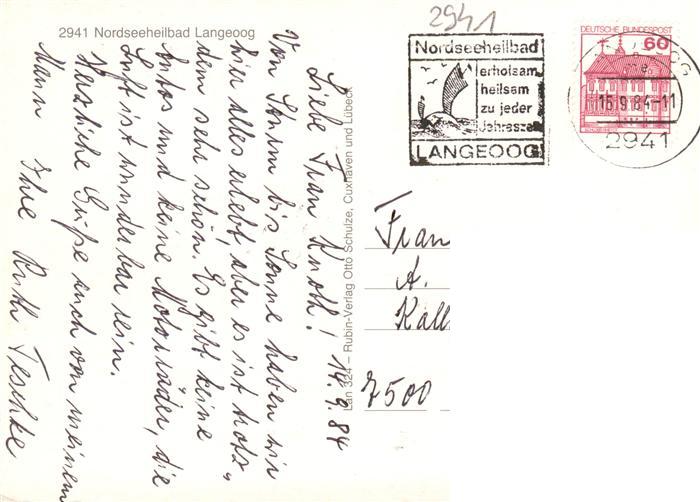 2941 Nordseeheilbad Langeoog
2941
Nordseeheilbad
erholsam
heilsam
zu jeder
Jahreszeit
LANGEOOG
DEUTSCHE BUNDESPOST
60
15.9.84-11
2941
Liebe Frau Knoth! 14.9.84
Von Sturm bis Sonne haben wir
hier alles erlebt aber es ist trotz-
dem sehr schön. Es gibt keine
Autos und keine Motorräder, die
Luft ist wunderbar rein.
Herzliche Grüße auch von meinem
Mann Ihre Ruth Teschke
Lan 324 – Rubin-Verlag Otto Schulze, Cuxhaven und Lübeck
Frau
A.
Kall
7500